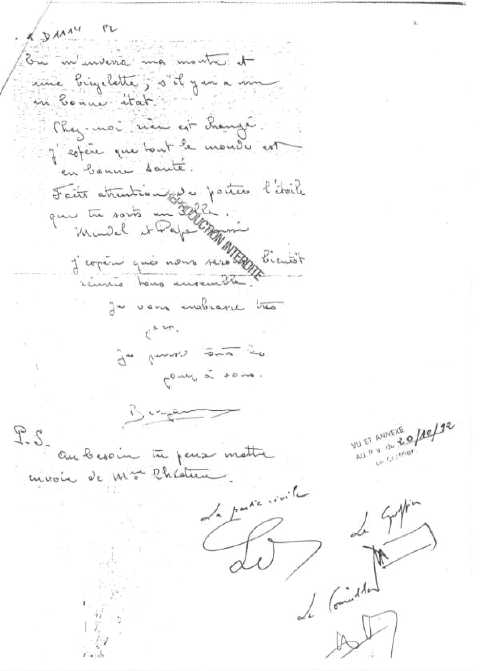 D1114 P2
Tu m'enverra ma montre et
une bicyclette, s'il y en a une
en bonne état.
Chez-moi rien est changé.
J'espère que tout le monde est
en bonne santé.
Faits attention de porter l'étoile
que tu sorts en ville.
Mendel et Papa aussi
REPRODUCTION INTERDITE
j'espère que nous serons bientôt
réunis tous ensemble.
Je vous embrasse très
fort.
je pense toute la
jour à vous.
P.S.
au besoin tu peux mettre
envoie de Mme
VU ET ANNEXE
AU P.V. du 20/10/92
Le Greffier
La partie civile
Le Greffier
Le Conseiller